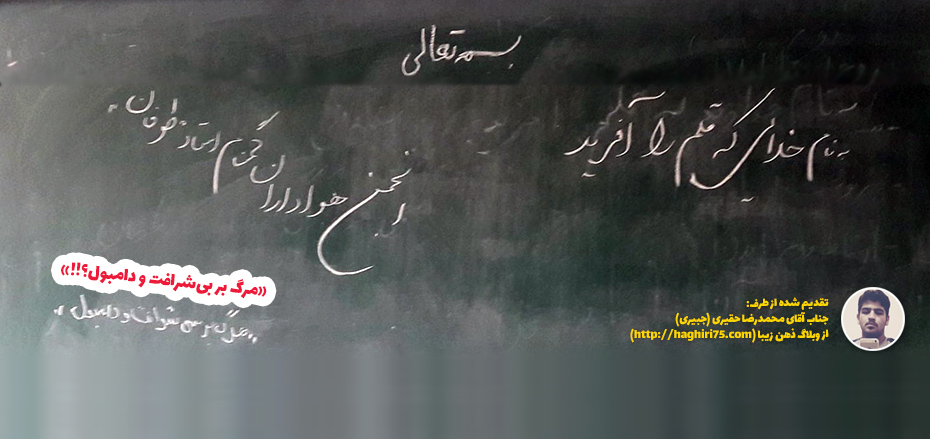 بسمه تعالی
به نام خدائی که قلم را آفرید
انجمن هوادارن گمنام استاد طوفان
«مرگ بر بی‌شرافت و دامبول؟!!»
«مرگ بر بی شرافت و دامبول»
تقدیم شده از طرف:
جناب آقای محمدرضا حقیری (جبیری)
از وبلاگ ذهن زیبا (http://haghiri75.com)